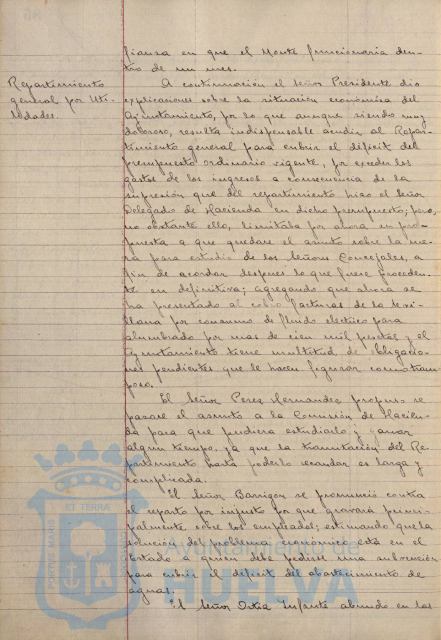 fianza en que el Monte funcionaria den-
tro de un mes.
Repartimiento
general por Uti-
lidades.
A continuación el Señor Presidente dio
explicaciones sobre la situación económica del
Ayuntamiento, por lo que aunque siendo muy
doloroso, resulta indispensable acudir al Repar-
timiento general para cubrir el déficit del
presupuesto ordinario vigente, por exceder los
gastos de los ingresos a consecuencia de la
supresión que del repartimiento hizo el Señor
Delegado de Hacienda en dicho presupuesto; pero,
no obstante ello, limitaba por ahora su pro-
puesta a que quedare el asunto sobre la me-
sa para estudio de los Señores Concejales, a
fin de acordar despues lo que fuese proceden-
te en definitiva; agregando que ahora se
ha presentado al cobro facturas de la Sevi-
llana por consumo de fluido electrico para
alumbrado por mas de cien mil pesetas y el
Ayuntamiento tiene multitud de obligacio-
nes pendientes que le hacen figurar como tram-
poso.
El Señor Perez Hernandez propuso se
pasare el asunto a la Comisión de Hacien-
da para que pudiera estudiarlo y ganar
algun tiempo, ya que la tramitación del Re-
partimiento hasta poderlo recaudar es larga y
complicada.
El Señor Barrigon se pronunció contra
el reparto por injusto por que gravará princi-
palmente sobre los empleados; estimando que la
solución del problema económico está en el
Estado a quien debe pedirse una subvención
para cubrir el déficit del abastecimiento de
aguas.
El Señor Infante abundo en las
PORTUS MARIS
ET TERRA
Ayuntamiento de
HUELVA